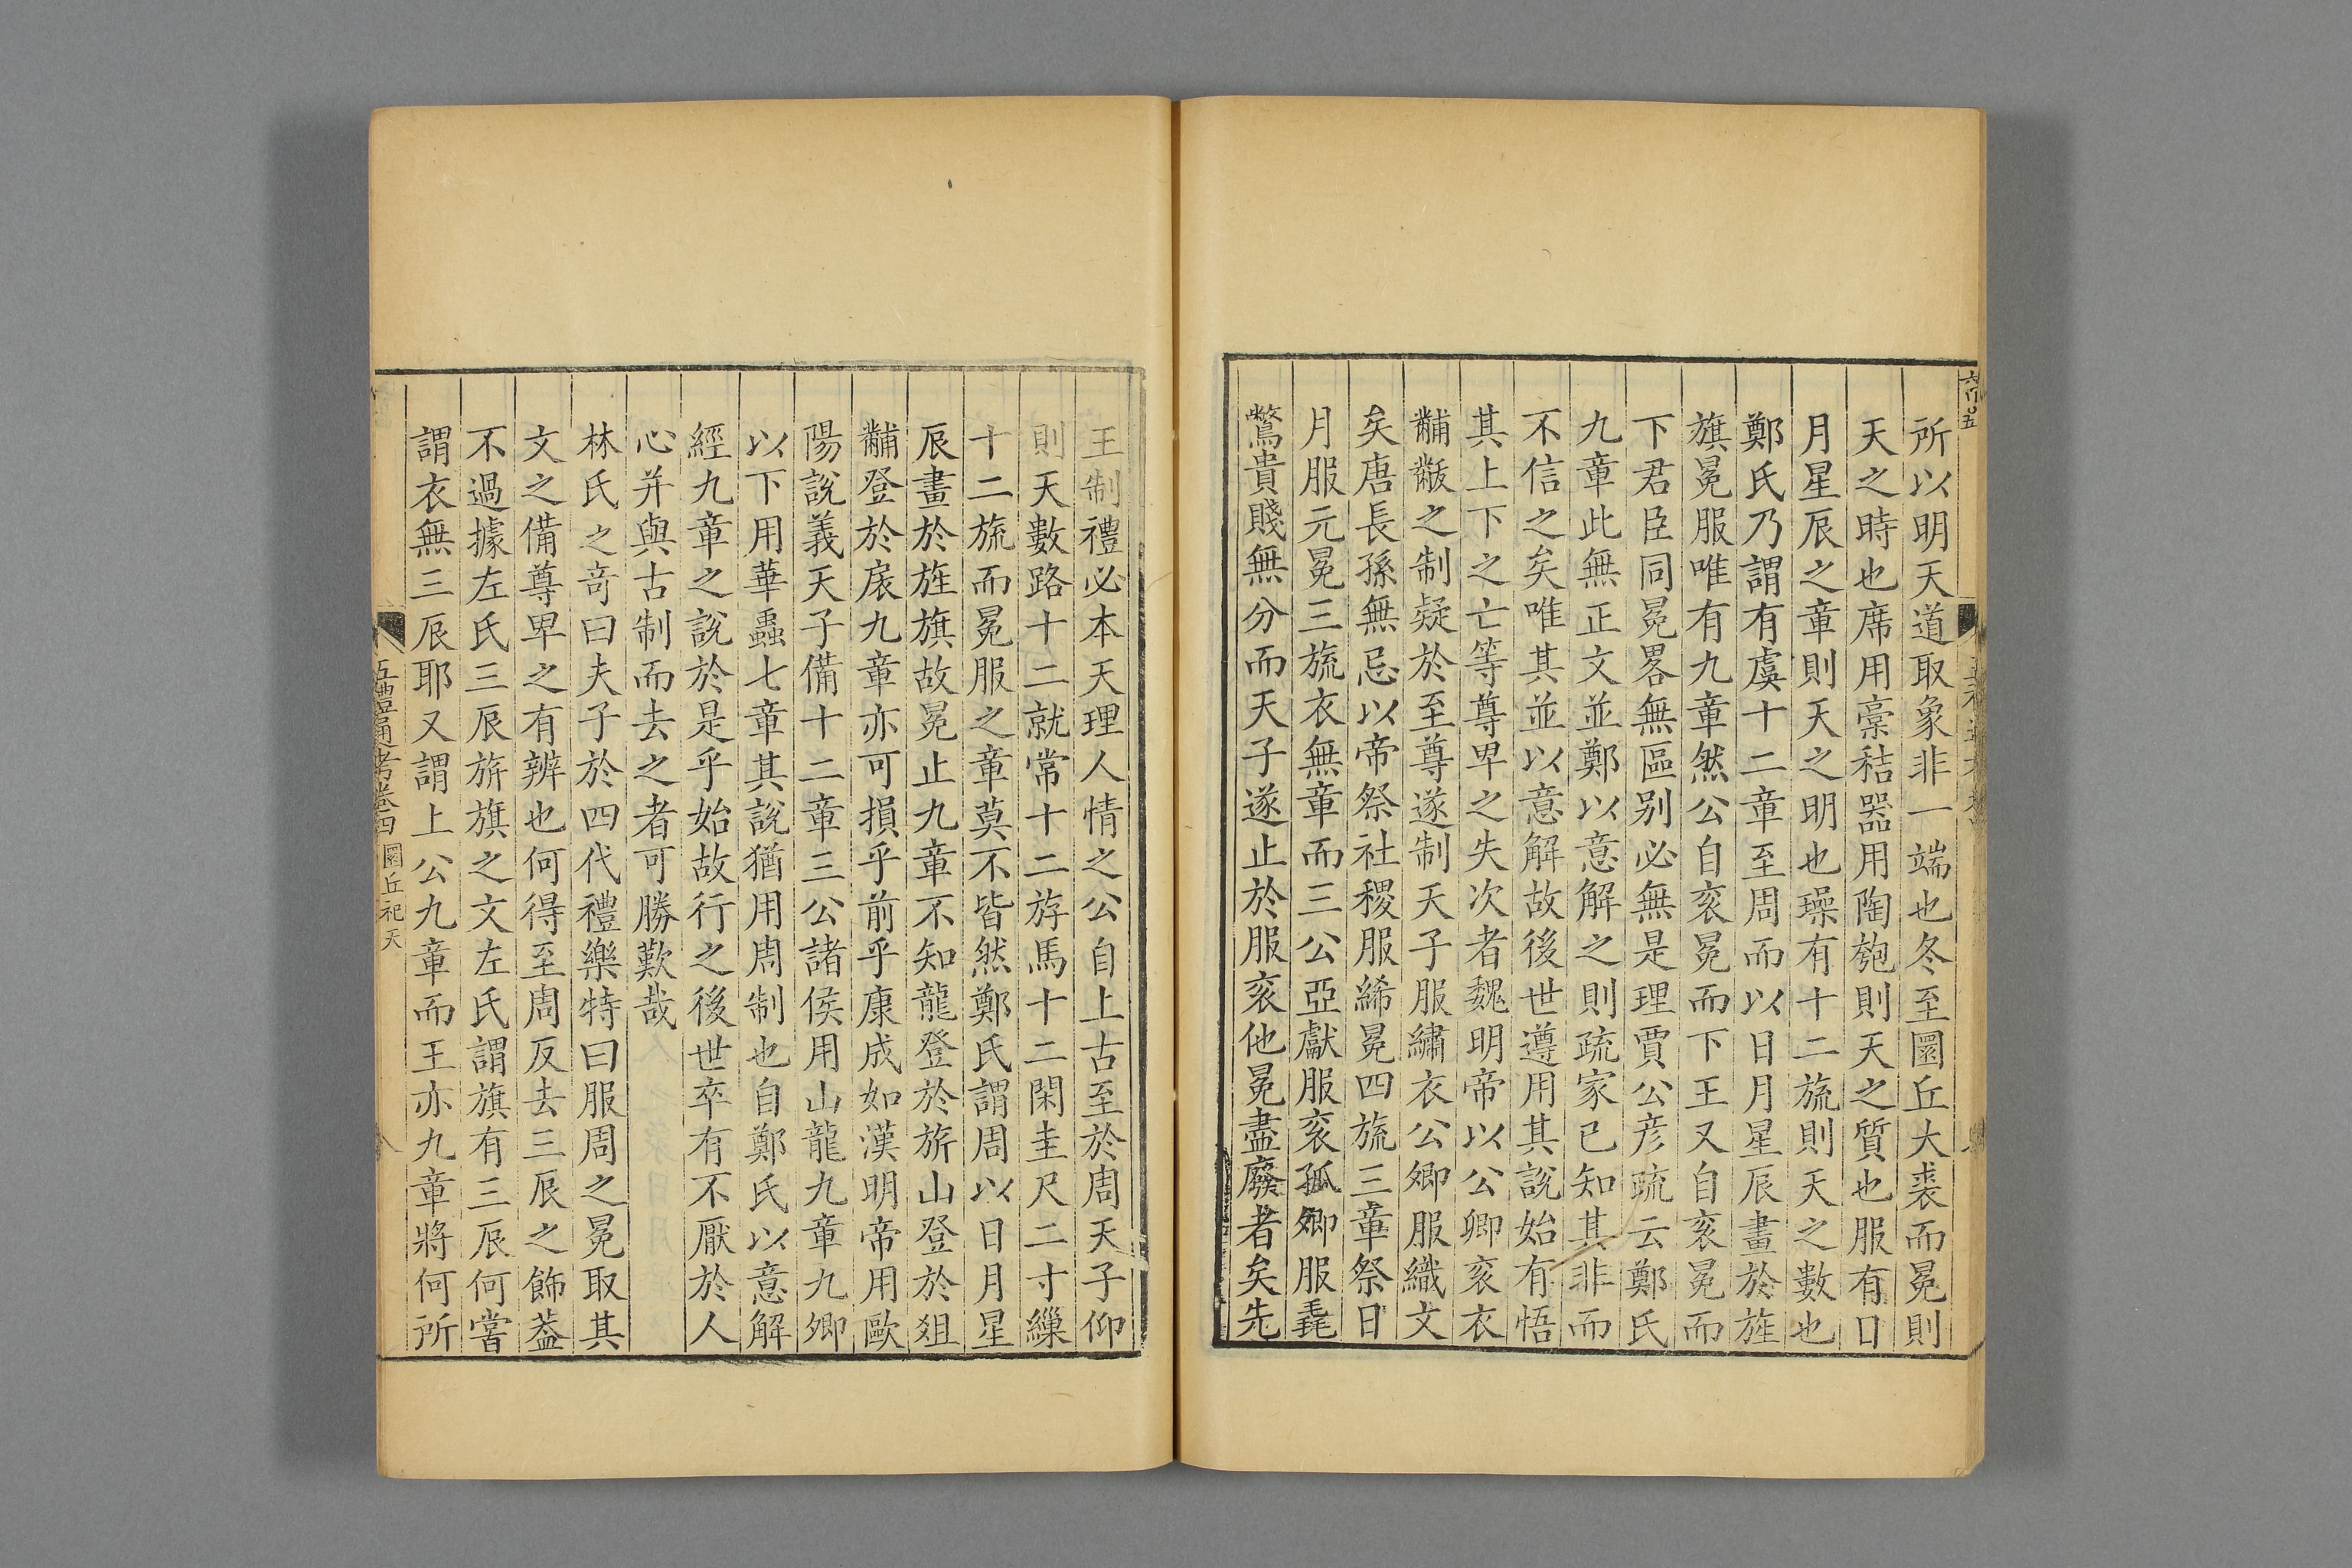 所以明天道取象非一端也冬至圜丘大裘而冕則
天之時也席用槀秸器用陶匏則天之質也服有日
月星辰之章則天之明也璪有十二旒則天之數也
鄭氏乃謂有虞十二章至周而以日月星辰畫於旌
旗冕服唯有九章然公自衮冕而下王又自衮冕而
下君臣同冕畧無區别必無是理賈公彦疏云鄭氏
九章此無正文並鄭以意解之則疏家已知其非而
不信之矣唯其並以意解故後世遵用其說始有悟
其上下之亡等尊卑之失次者魏明帝以公卿衮衣
黼黻之制疑於至尊遂制天子服繡衣公卿服織文
矣唐長孫無忌以帝祭社稷服絺冕四旒三章祭日
月服元冕三旒衣無章而三公亞獻服衮孤卿服毳
鷩貴賤無分而天子遂止於服衮他冕盡廢者矣先
王制禮必本天理人情之公自上古至於周天子仰
則天數路十二就常十二斿馬十二閑圭尺二寸繅
十二旒而冕服之章莫不皆然鄭氏謂周以日月星
辰畫於旌旗故冕止九章不知龍登於旂山登於俎
黼登於扆九章亦可損乎前乎康成如漢明帝用歐
陽說義天子備十二章三公諸侯用山龍九章九卿
以下用華蟲七章其說猶用周制也自鄭氏以意解
經九章之說於是乎始故行之後世卒有不厭於人
心并與古制而去之者可勝歎哉
林氏之奇曰夫子於四代禮樂特曰服周之冕取其
文之備尊卑之有辨也何得至周反去三辰之飾葢
不過據左氏三辰旂旗之文左氏謂旗有三辰何嘗
謂衣無三辰耶又謂上公九章而王亦九章將何所
五禮通考卷四 圜丘祀天